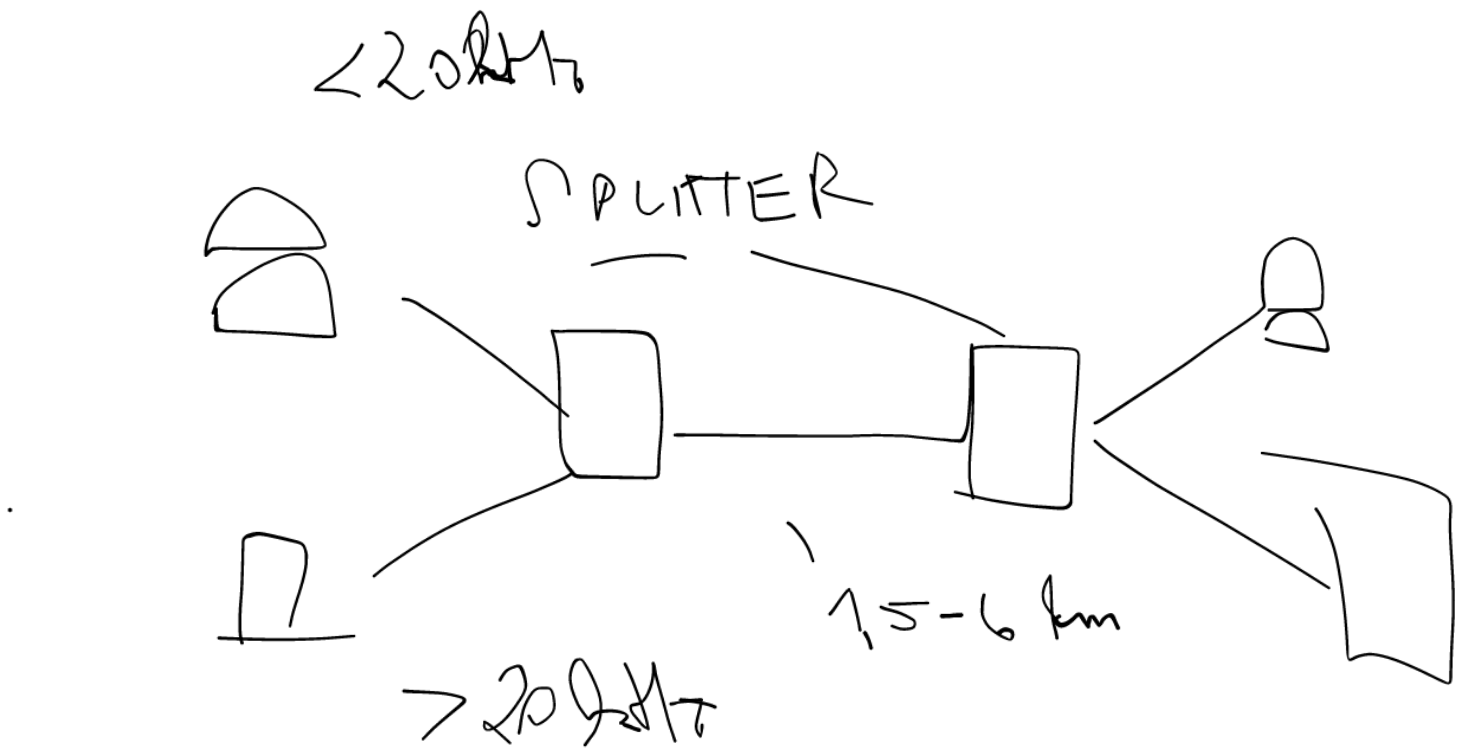 <20kHz
SPLITTER
1,5-6 km
>20kHz